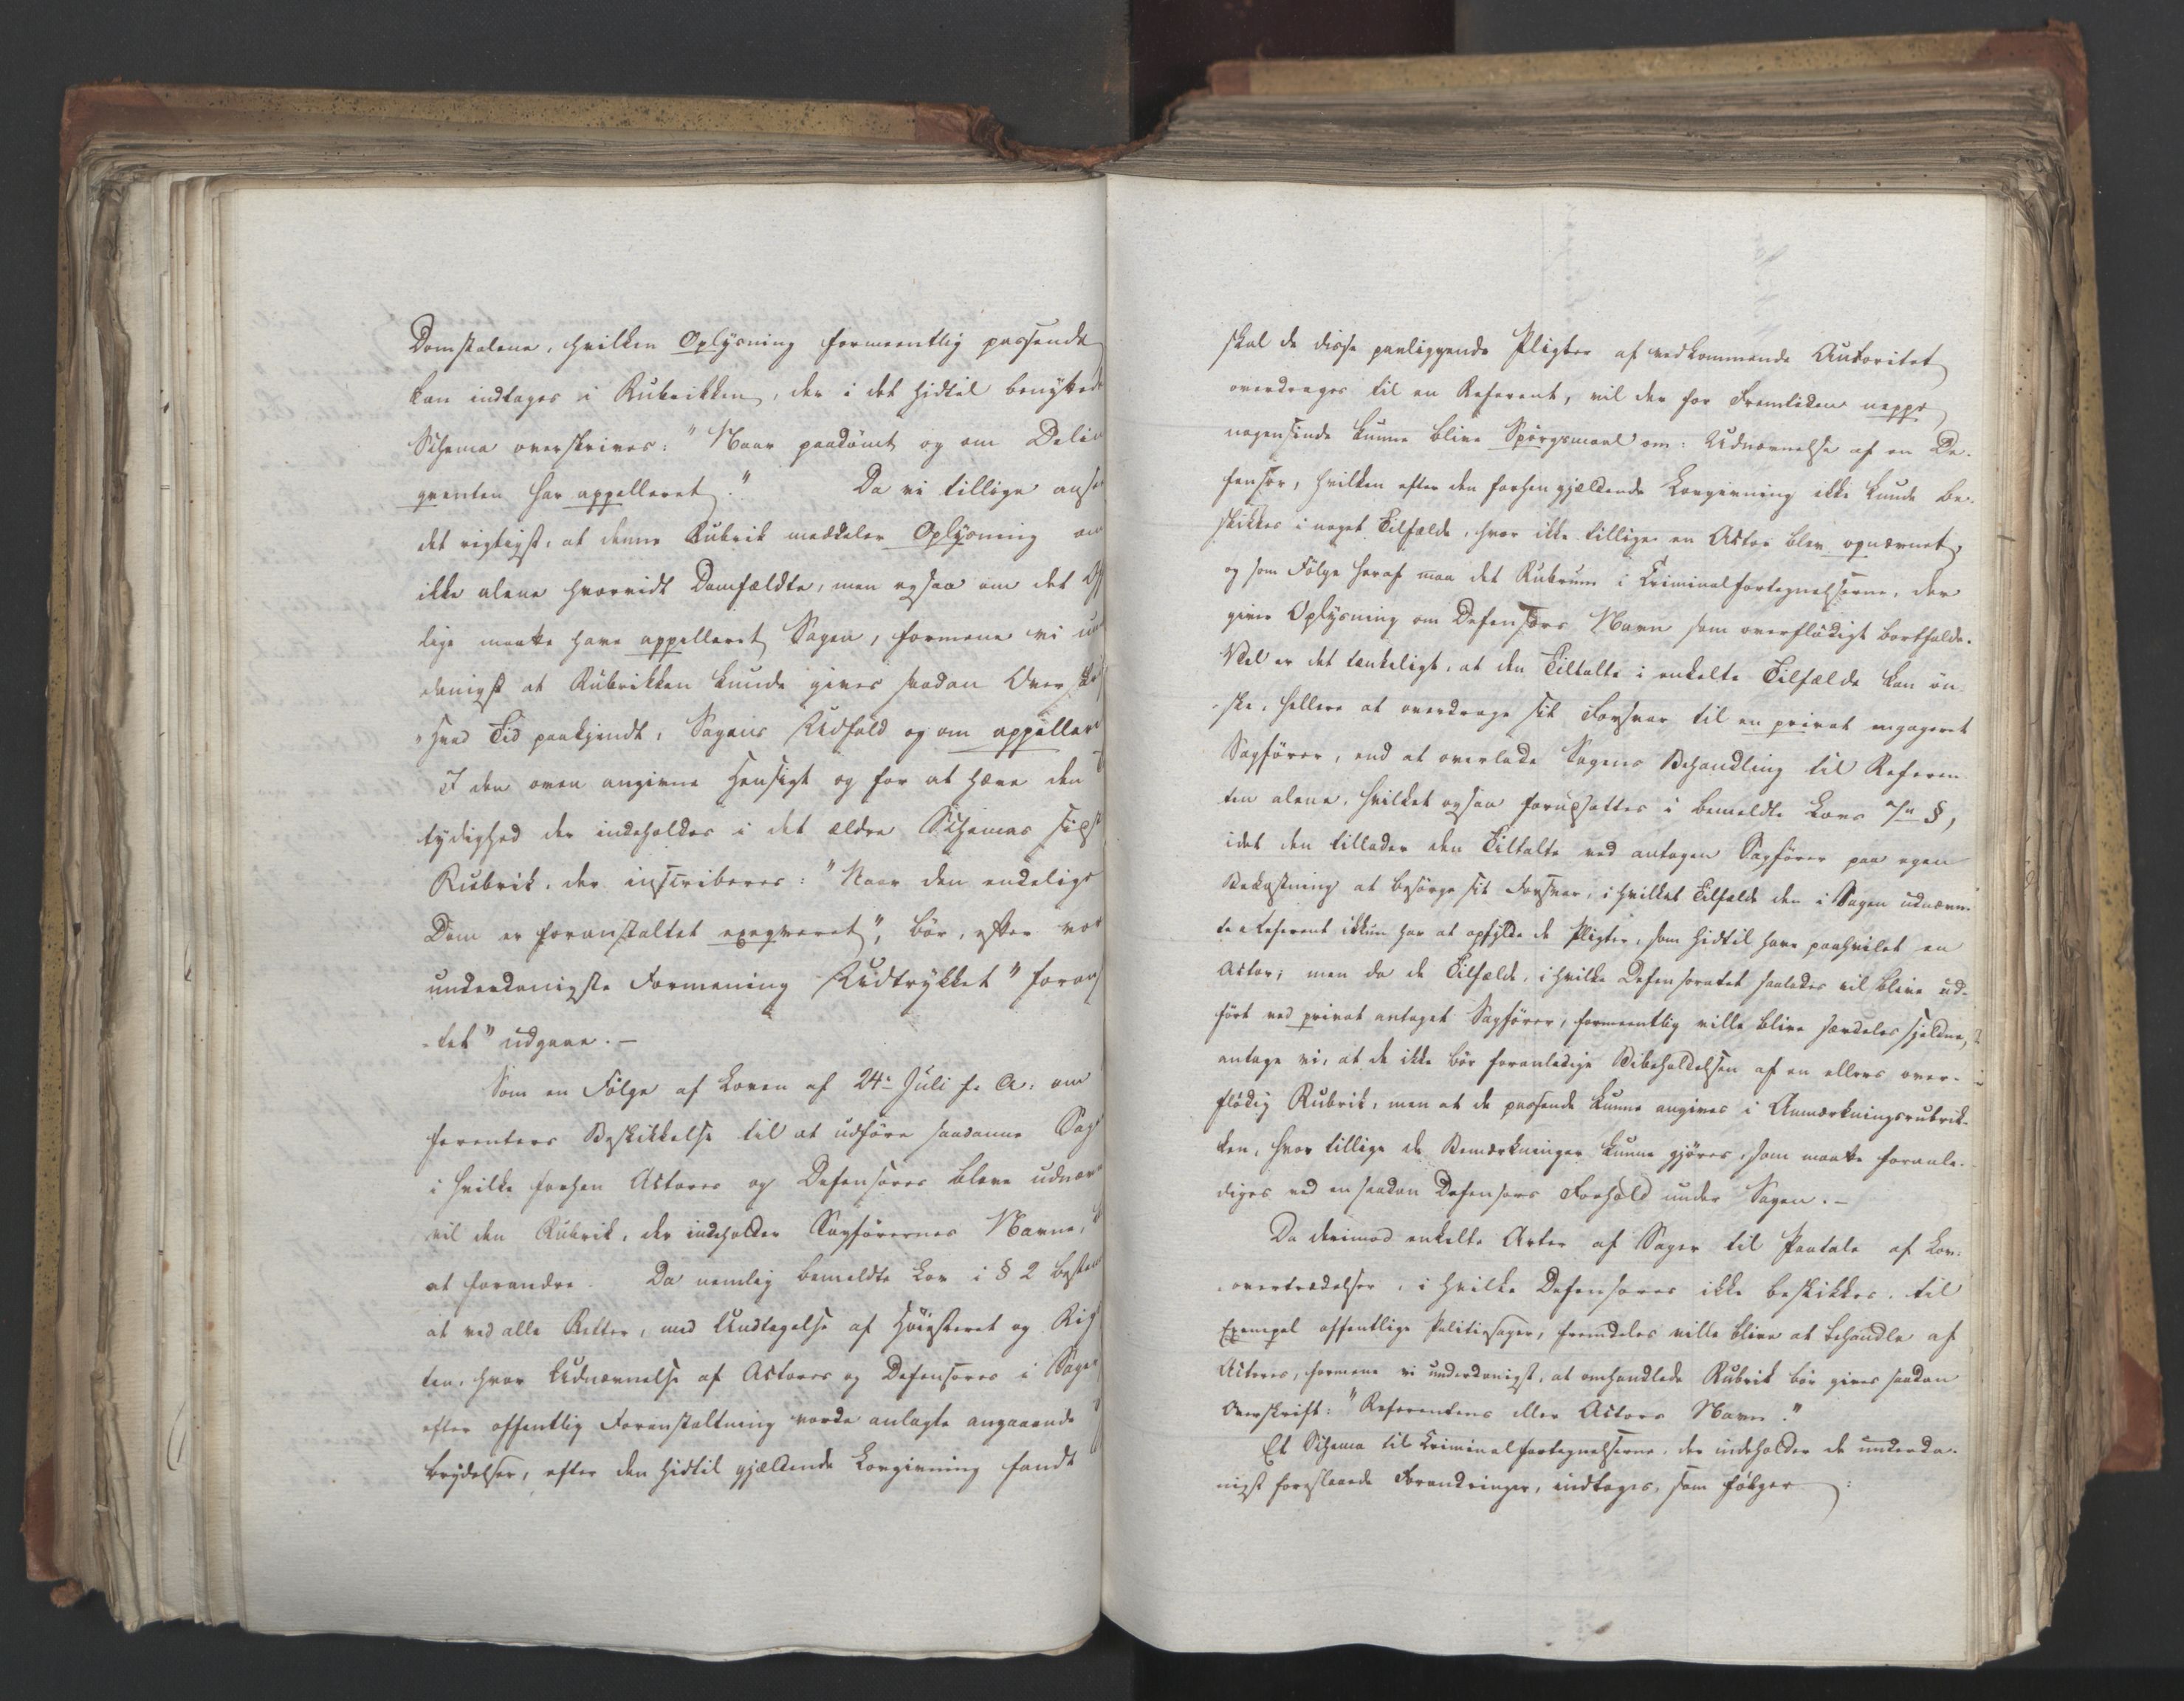 Domstolene, hvilken Oplysning formeentlig passende
kan indtages i Rubrikken, der i det hidtil benyttede
Schema overskrives: "Naar paadømt og om Delin
qventen har appelleret." Da vi tillige anse
det rigtigst, at denne Rubrik meddeler Oplysning om
ikke alene hvorvidt Domfældte, men ogsaa om det Off
lige maatte have appelleret Sagen, formene vi un
danigst at Rubrikken kunde gives saadan Over
"hvad Tid paakjendt, Sagens Udfald og om appelleret
I den oven angivne Hensigt og for at hæve den
tydighed der indeholdes i det ældre Schemas sidste
Rubrik, der inscriberes: "Naar den endelige
Dom er foranstaltet exeqveret", bør, efter vor
underdanigste Formening Udtrykket "foran
-tet" udgaae.-
Som en Følge af Loven af 24de Juli f. A. om
ferenters Beskikkelse til at udføre saadanne Sag
i hvilke forhen Actores og Defensores bleve udnævn
vil den Rubrik, der indeholder Sagførernes Navne,
at forandre. Da nemlig bemeldte Lov i § 2 bestem
at ved alle Retter, med Undtagelse af Høiesteret og Rig
ten, hvor Udnævnelse af Actores og Defensores i Sager
efter offentlig Foranstaltning vorde anlagte angaaende
brydelser, efter den hidtil gjældende Lovgivning fandt
skal de disse paaliggende Pligter af vedkommende Autoritet
overdrages til en Referent, vil der for Fremtiden neppe
nogensinde kunne blive Spørgsmaal om: Udnævnelse af en De-
fensor, hvilken efter den forhen gjældende Lovgivning ikke kunde be-
skikkes i noget Tilfælde, hvor ikke tillige en Actor blev opnævnet,
og som Følge heraf maa det Rubrum i Criminalfortegnelserne, der
giver Oplysning om Defensors Navn som overflødigt bortfalde.
Vel er det tænkeligt, at den Tiltalte i enkelte Tilfælde kan øn-
-ske, hellere at overdrage sit Forsvar til en privat engageret
Sagfører, end at overlade Sagens Behandling til Referen
ten alene, hvilket ogsaa forudsættes i bemeldte Lovs §,
idet den tillader den Tiltalte ved antagen Sagfører paa egen
Bekostning at besørge sit Forsvar, i hvilket Tilfælde den i Sagen udnævn-
te Referent ikkun har at opfylde de Pligter, som hidtil have paahvilet en
Actor; men da de Tilfælde, i hvilke Defensoratet saaledes vil blive ud-
ført ved privat antaget Sagfører, formeentlig ville blive særdeles sjeldne,
antage vi, at de ikke bør foranledige Bibeholdelsen af en ellers over-
flødig Rubrik, men at de passende kunne angives i Anmærkningsrubrik-
ken, hvor tillige de Bemærkninger kunne gjøres, som maatte foranle-
diges ved en saadan Defensors Forhold under Sagen.-
Da derimod enkelte Arter af Sager til Paatale af Lov-
-overtrædelser, i hvilke Defensorer ikke beskikkes, til
Exempel offentlige Politiesager, fremdeles ville blive at behandle af
Actores, formene vi underdanigst, at omhandlede Rubrik bør gives saadan
Overskrift: "Referentens eller Actors Navn."
Et Schema til Criminalfortegnelserne, der indeholder de underda-
nigst foreslaaede Forandringer, indtages, som følger: